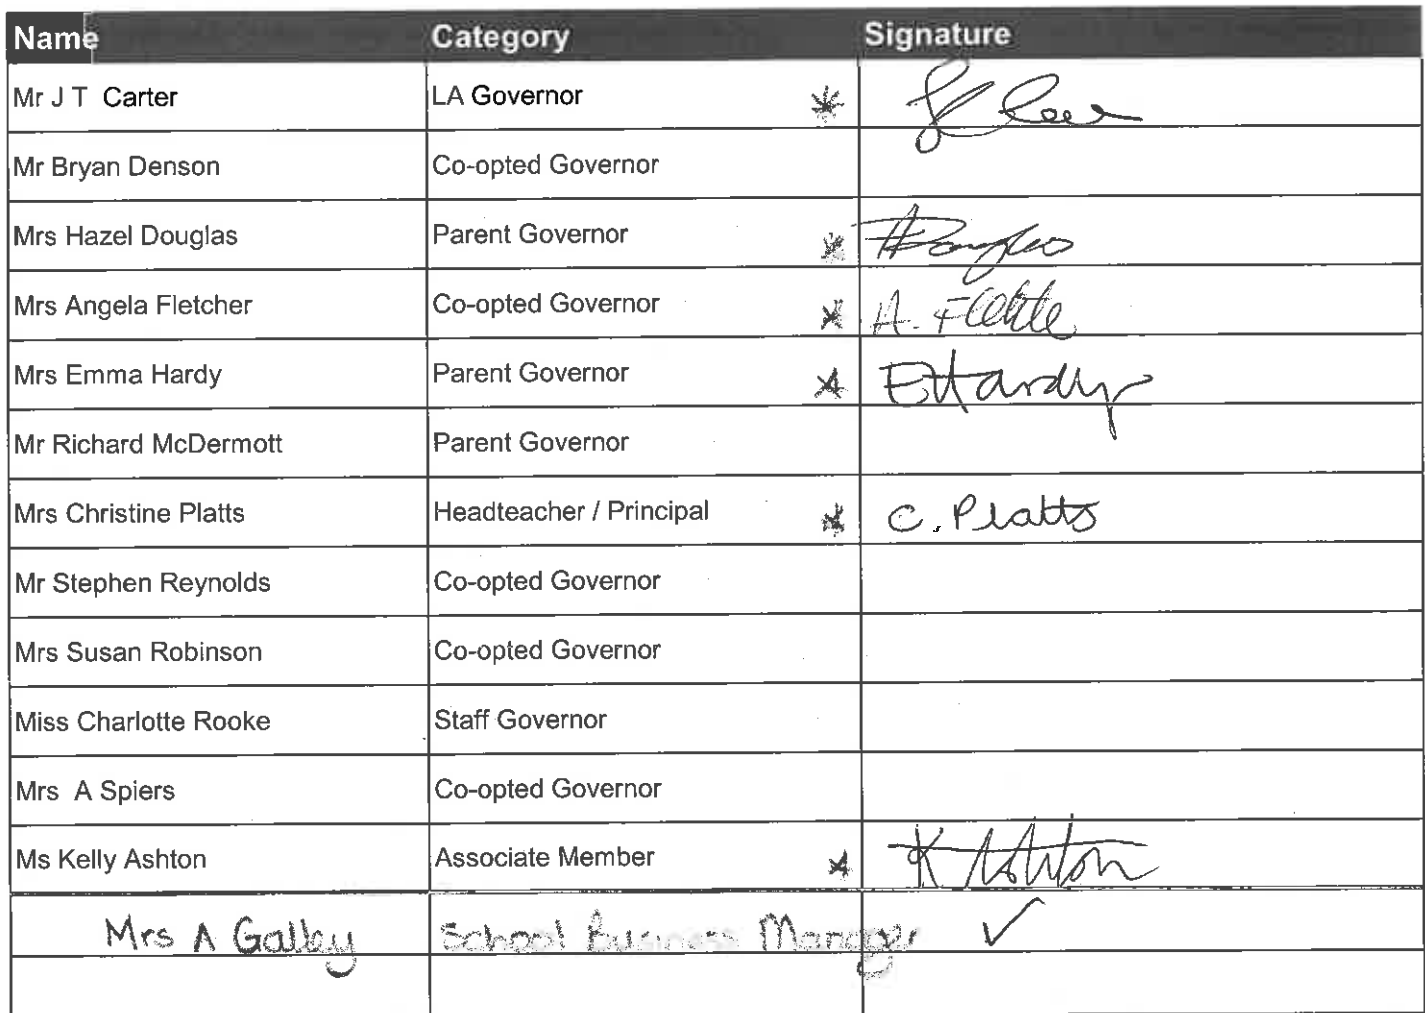 Name Category Signature
Mr J T Carter LA Governor *
Mr Bryan Denson Co-opted Governor
Mrs Hazel Douglas Parent Governor * HDouglas
Mrs Angela Fletcher Co-opted Governor * A. Fletche
Mrs Emma Hardy Parent Governor * EHardy
Mr Richard McDermott Parent Governor
Mrs Christine Platts Headteacher / Principal * C. Platts
Mr Stephen Reynolds Co-opted Governor
Mrs Susan Robinson Co-opted Governor
Miss Charlotte Rooke Staff Governor
Mrs A Spiers Co-opted Governor
Ms Kelly Ashton Associate Member * K Ashton
Mrs A Galley School Business Manager ✓